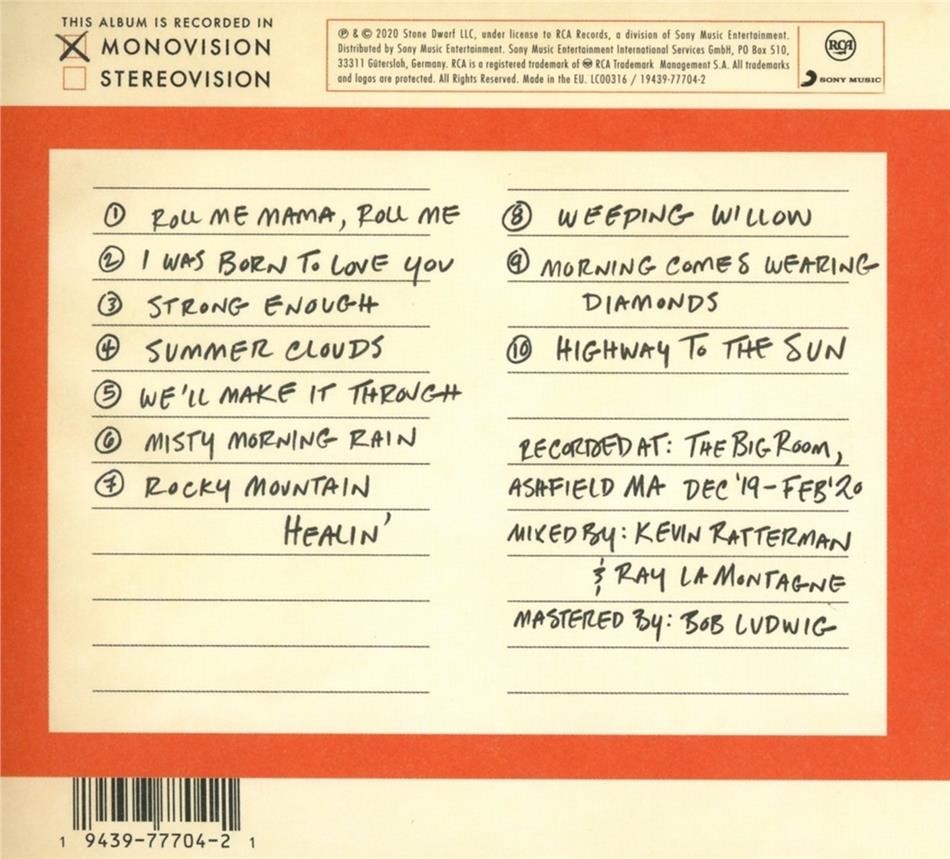 THIS ALBUM IS RECORDED IN
MONOVISION
STEREOVISION
℗ & © 2020 Stone Dwarf LLC, under license to RCA Records, a division of Sony Music Entertainment.
Distributed by Sony Music Entertainment. Sony Music Entertainment International Services GmbH, PO Box 510,
33311 Gütersloh, Germany. RCA is a registered trademark of RCA Trademark Management S.A. All trademarks
and logos are protected. All Rights Reserved. Made in the EU. LC00316 / 19439-77704-2
RCA
SONY MUSIC
1 ROLL ME MAMA, ROLL ME
2 I WAS BORN TO LOVE YOU
3 STRONG ENOUGH
4 SUMMER CLOUDS
5 WE'LL MAKE IT THROUGH
6 MISTY MORNING RAIN
7 ROCKY MOUNTAIN
HEALIN'
8 WEEPING WILLOW
9 MORNING COMES WEARING
DIAMONDS
10 HIGHWAY TO THE SUN
RECORDED AT: THE BIG ROOM,
ASHFIELD MA DEC '19-FEB'20
MIXED BY: KEVIN RATTERMAN
& RAY LAMONTAGNE
MASTERED BY: BOB LUDWIG
1 9439-77704-2 1